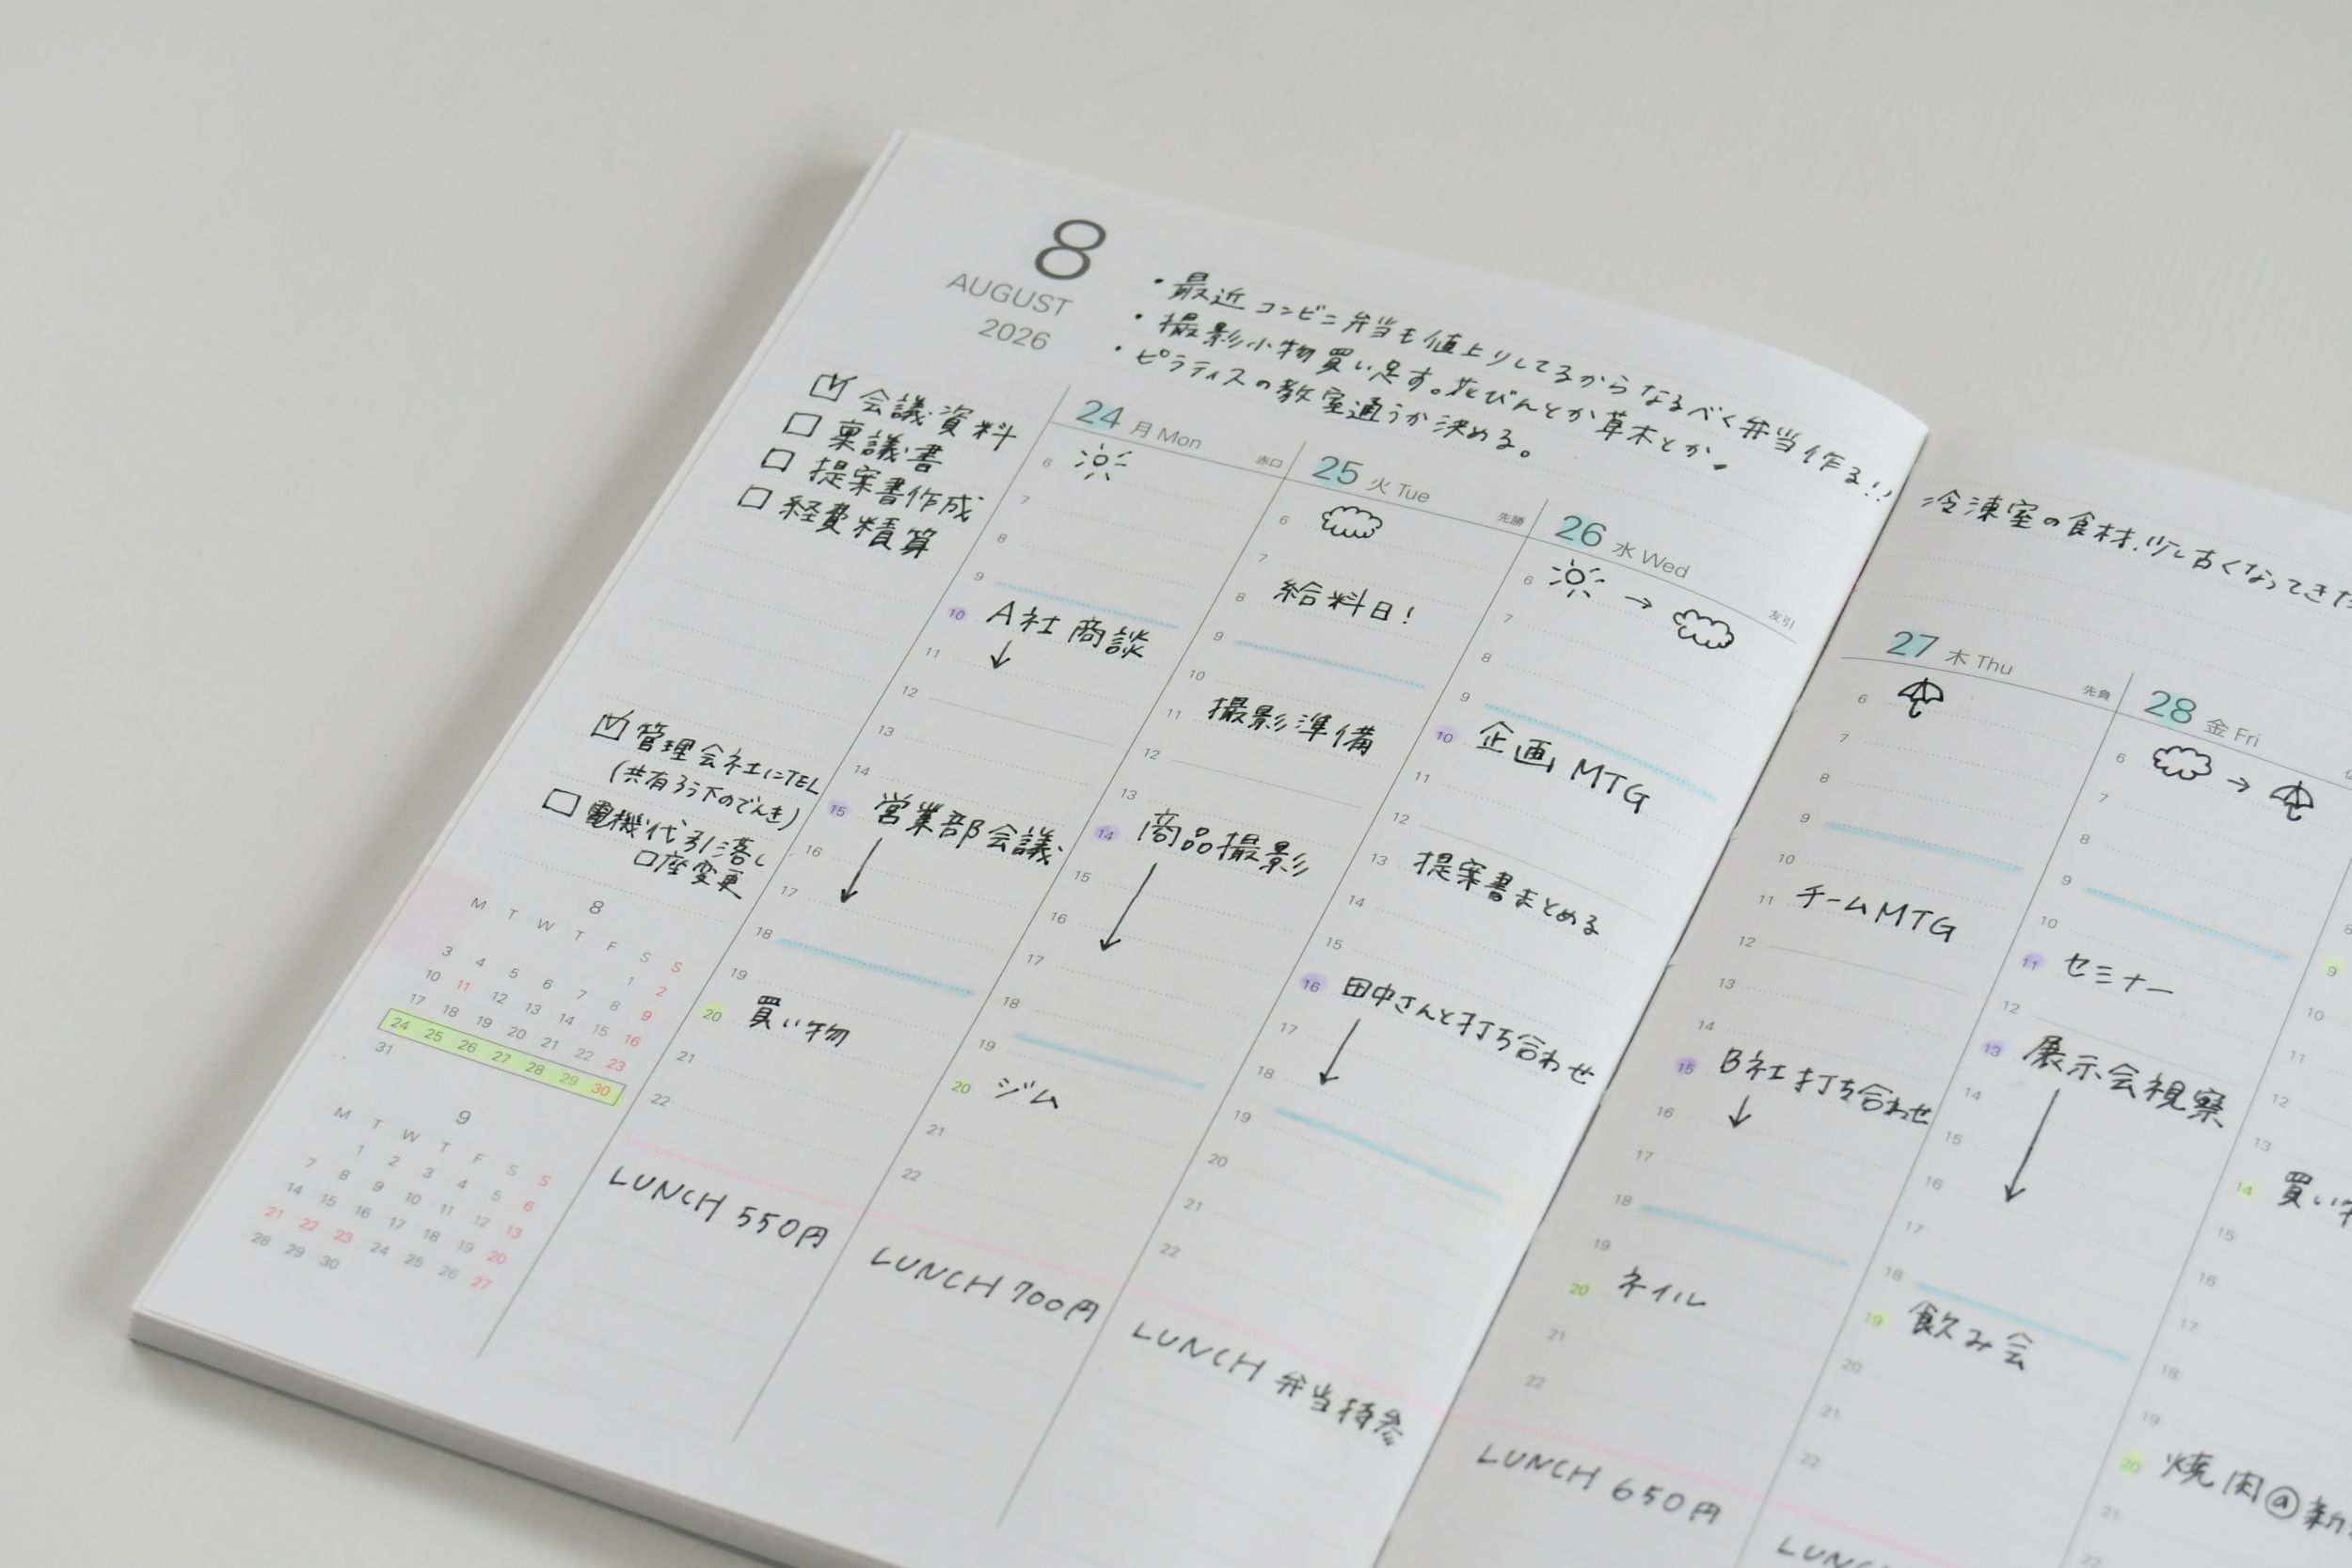 8
AUGUST
2026
・最近コンビニ弁当も値上りしてるからなるべく弁当作る!!
・撮影小物買い足す。花びんとか草木とか。
・ピラティスの教室通うか決める。
会議資料
稟議書
提案書作成
経費精算
管理会社にTEL
(共有ろう下のでんき)
電機代引落し
口座変更
8
M T W T F S S
1 2
3 4 5 6 7 8 9
10 11 12 13 14 15 16
17 18 19 20 21 22 23
24 25 26 27 28 29 30
31
9
M T W T F S S
1 2 3 4 5 6
7 8 9 10 11 12 13
14 15 16 17 18 19 20
21 22 23 24 25 26 27
28 29 30
24 月 Mon 赤口
6
7
8
9
10 A社 商談
11
12
13
14
15 営業部会議
16
17
18
19
20 買い物
21
22
LUNCH 550円
25 火 Tue 先勝
6
7
8 給料日!
9
10
11 撮影準備
12
13
14 商品撮影
15
16
17
18
19
20 ジム
21
22
LUNCH 700円
26 水 Wed 友引
6 →
7
8
9
10 企画MTG
11
12
13 提案書まとめる
14
15
16 田中さんと打ち合わせ
17
18
19
20
21
22
LUNCH 弁当持参
冷凍室の食材、少し古くなってきた
27 木 Thu 先負
6
7
8
9
10
11 チームMTG
12
13
14
15 B社打ち合わせ
16
17
18
19
20 ネイル
21
22
LUNCH 650円
28 金 Fri
6 →
7
8
9
10
11 セミナー
12
13 展示会視察
14
15
16
17
18
19 飲み会
20
21
22
LUNCH
8
9
10
11
12
13
14 買い
15
16
17
18
19
20 焼肉@新
21
22